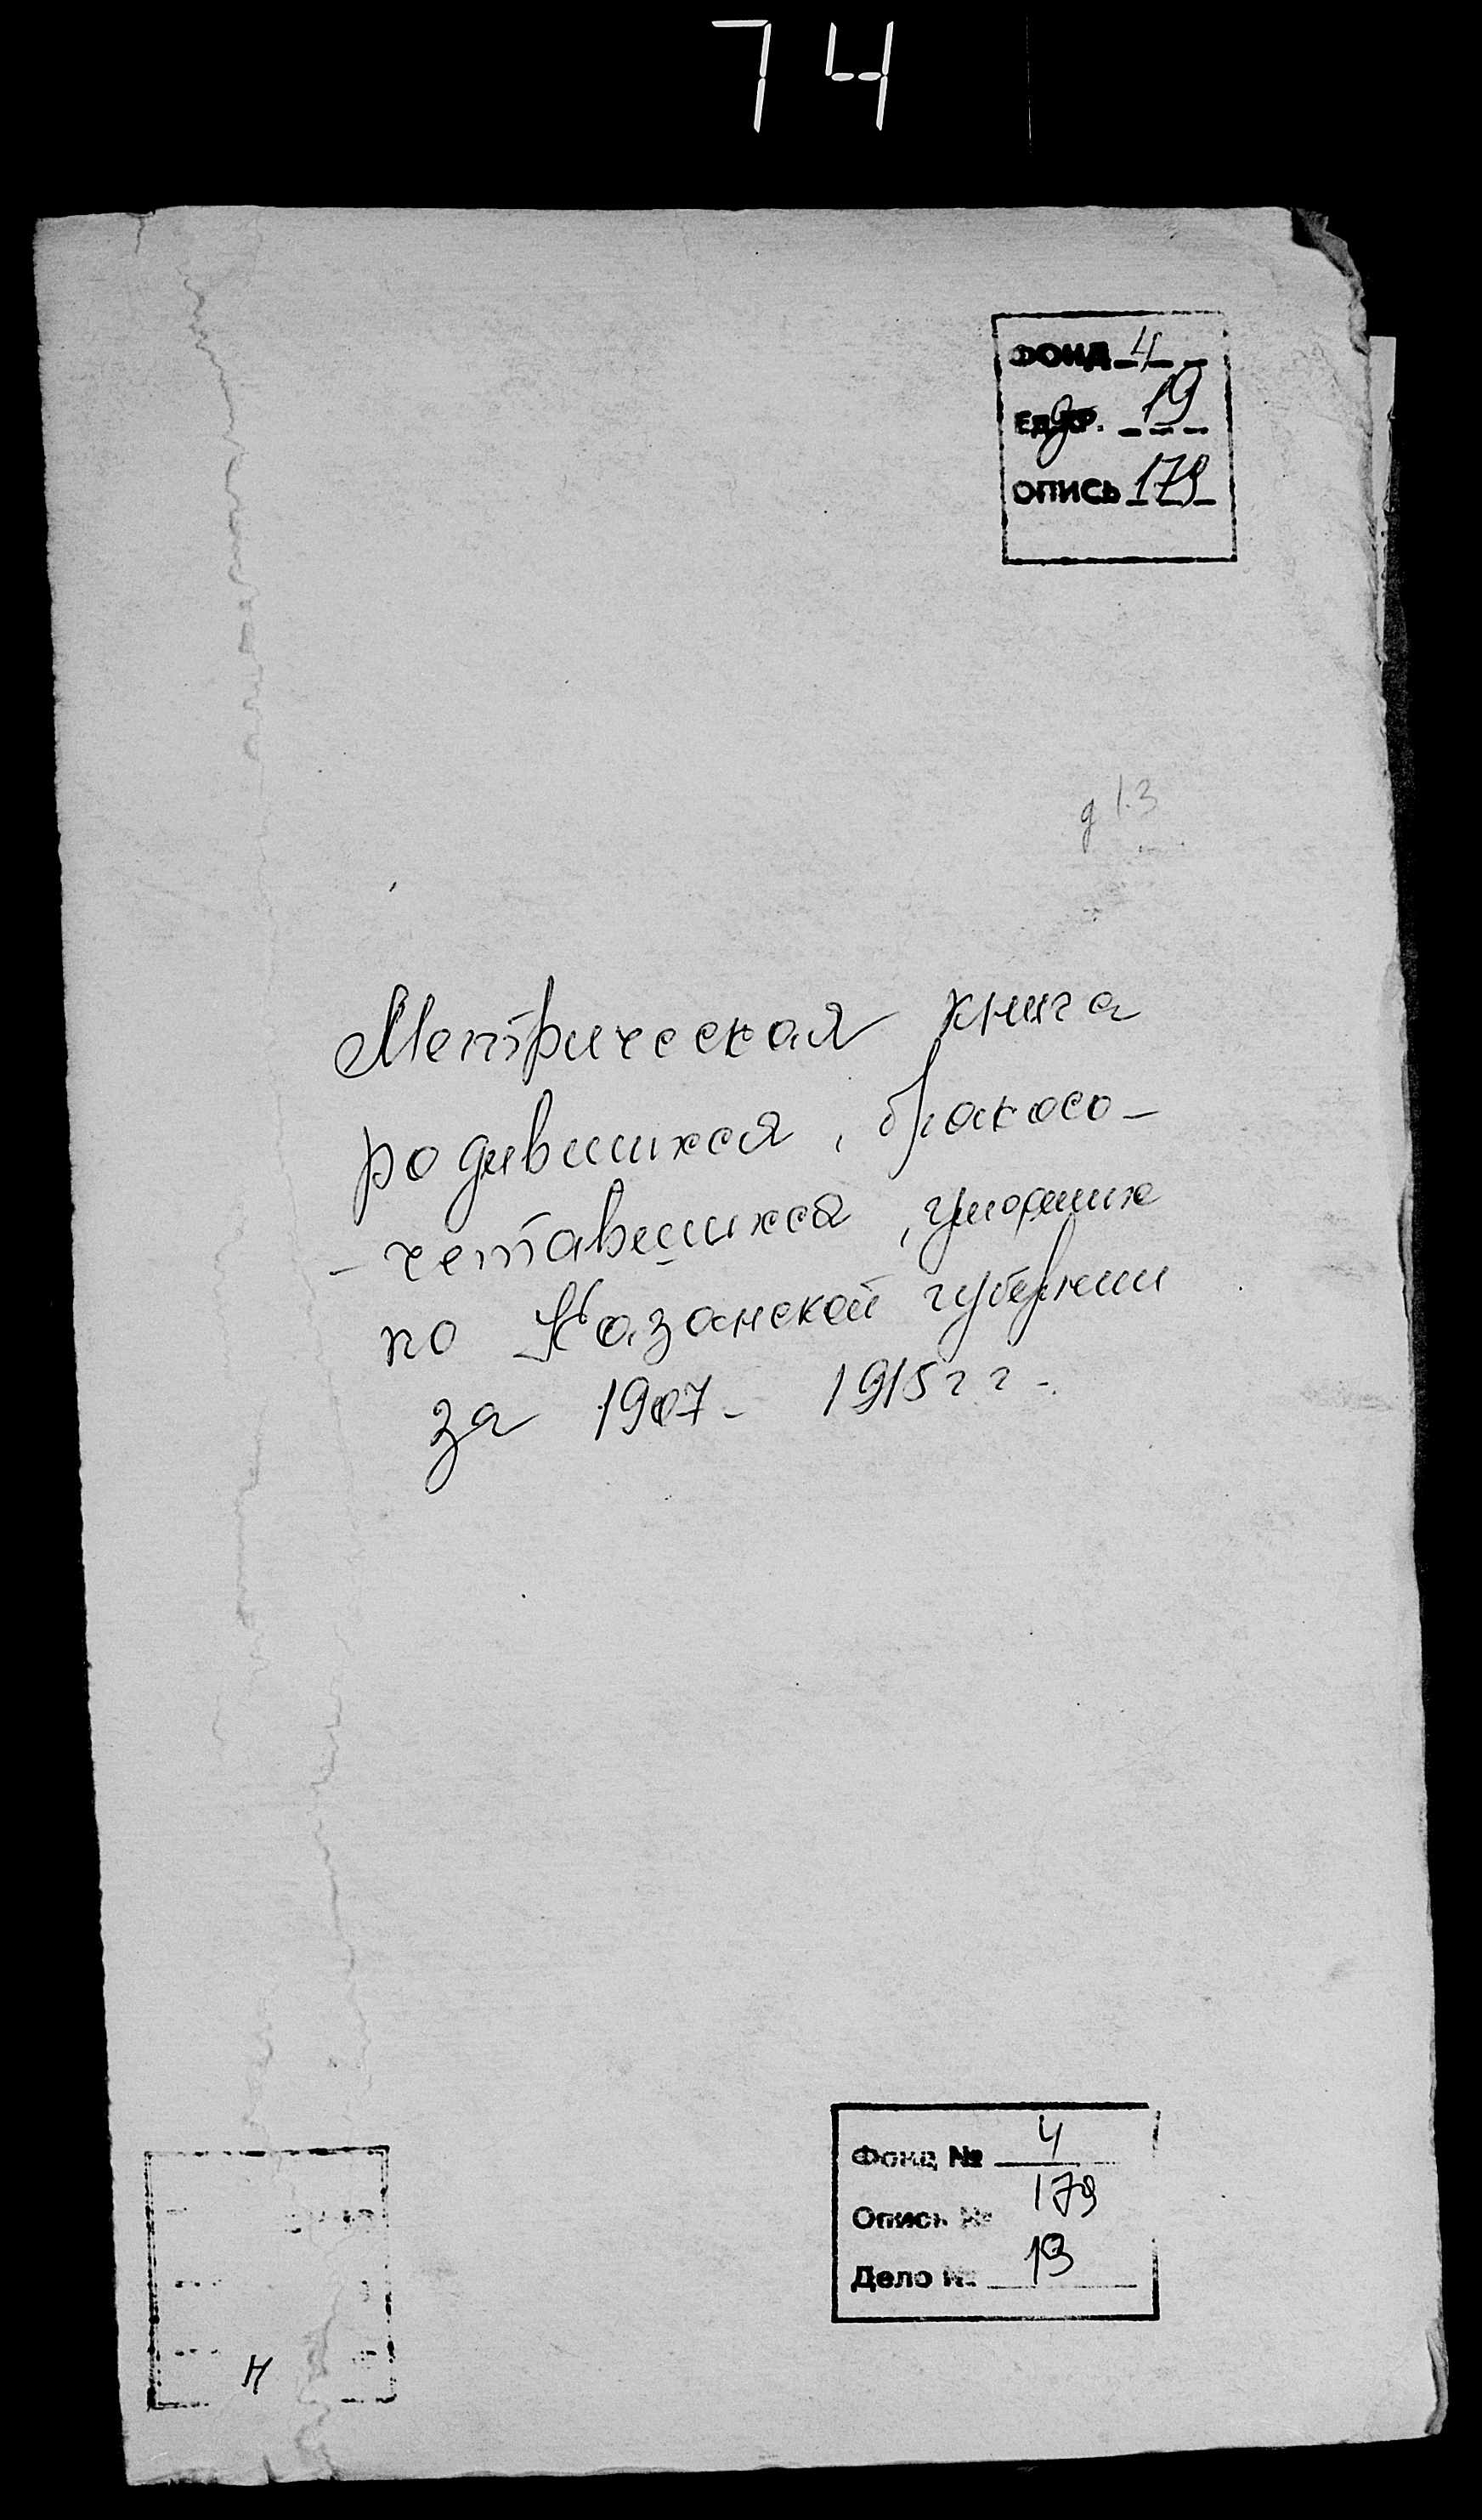 74
ФОНД 4
ЕД.ХР. 19
ОПИСЬ 179
д 13
Метрическая книга
родившихся, бракосо-
- четавшихся, умерших
по Казанской губернии
за 1907- 1915 г г.
Фонд № 4
Опись № 179
Дело № 19
Н